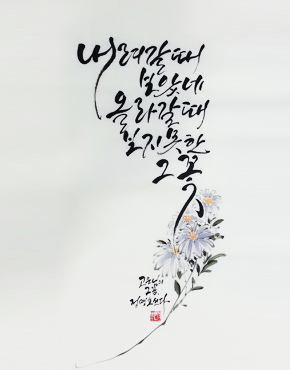 내려갈때
보았네
올라갈때
보지못한
그 꽃
고은님의
그꽃